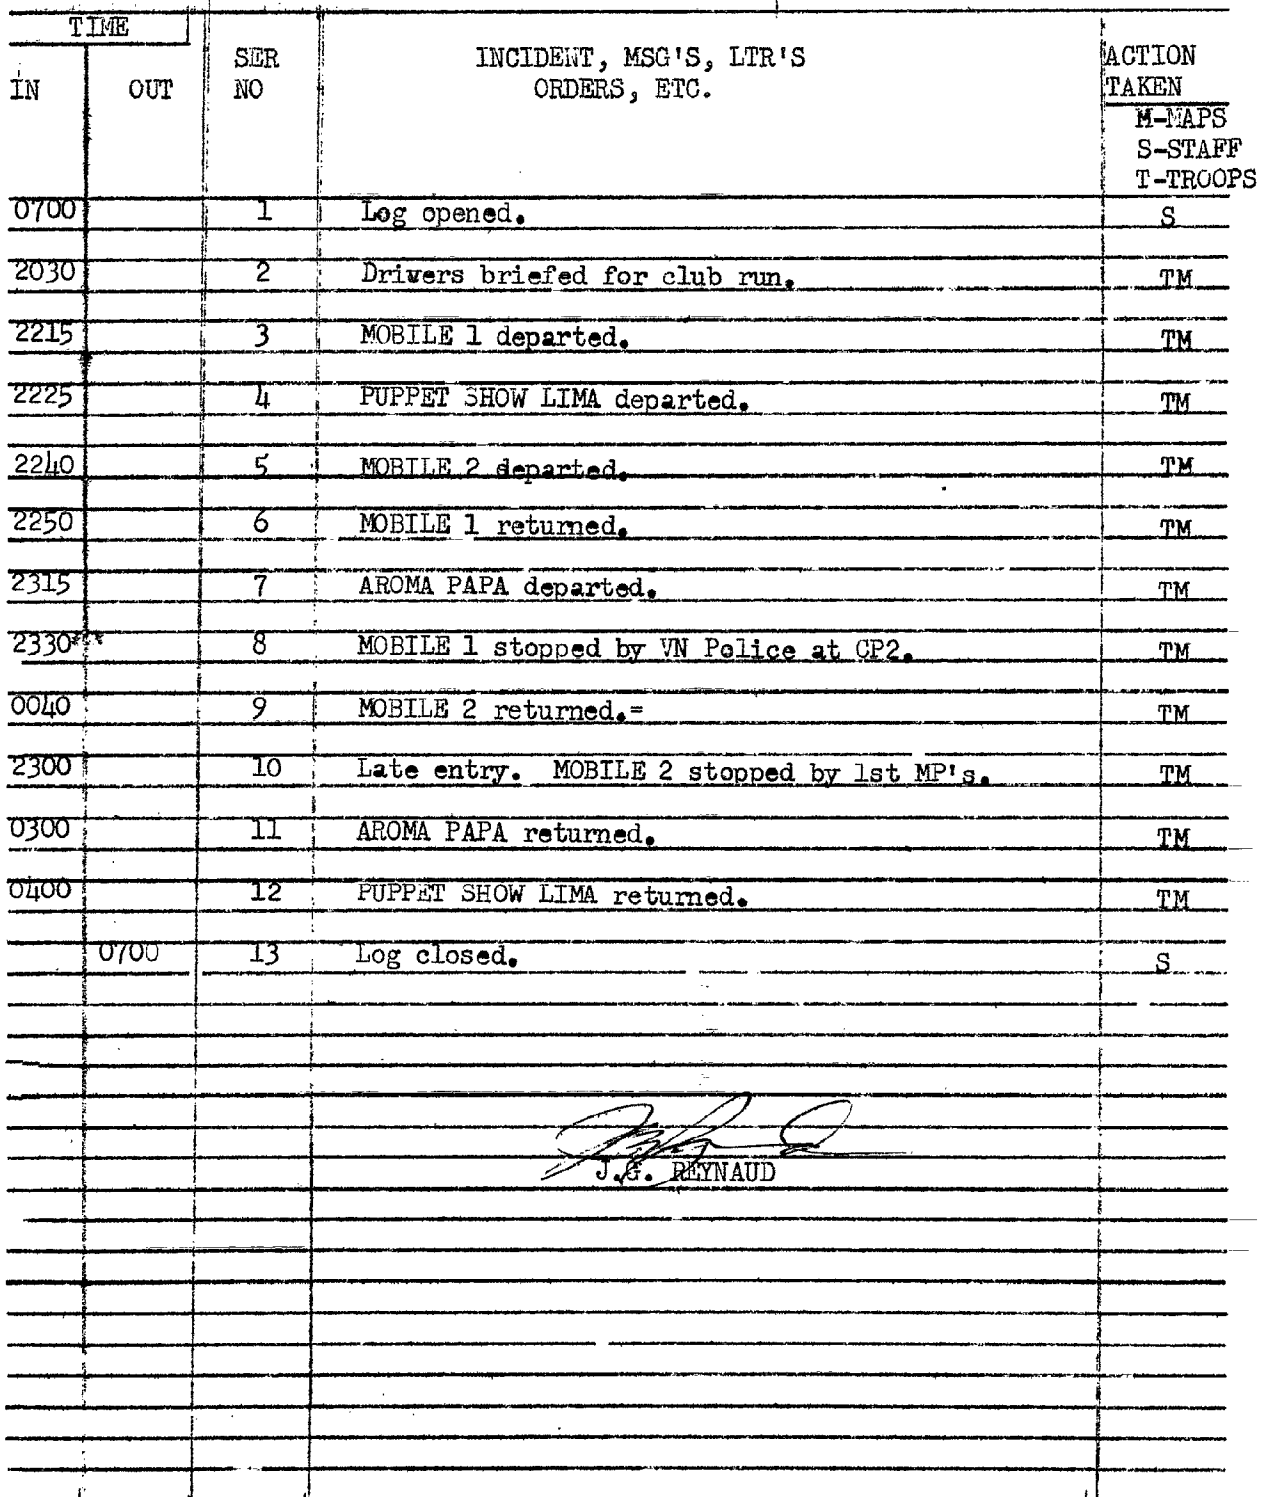 TIME
IN OUT SER NO INCIDENT, MSG'S, LTR'S ORDERS, ETC. ACTION TAKEN
M-MAPS
S-STAFF
T-TROOPS
0700 1 Log opened. S
2030 2 Drivers briefed for club run. TM
2215 3 MOBILE 1 departed. TM
2225 4 PUPPET SHOW LIMA departed. TM
2240 5 MOBILE 2 departed. TM
2250 6 MOBILE 1 returned. TM
2315 7 AROMA PAPA departed. TM
2330*** 8 MOBILE 1 stopped by VN Police at CP2. TM
0040 9 MOBILE 2 returned.= TM
2300 10 Late entry. MOBILE 2 stopped by 1st MP's. TM
0300 11 AROMA PAPA returned. TM
0400 12 PUPPET SHOW LIMA returned. TM
0700 13 Log closed. S
J.G. REYNAUD